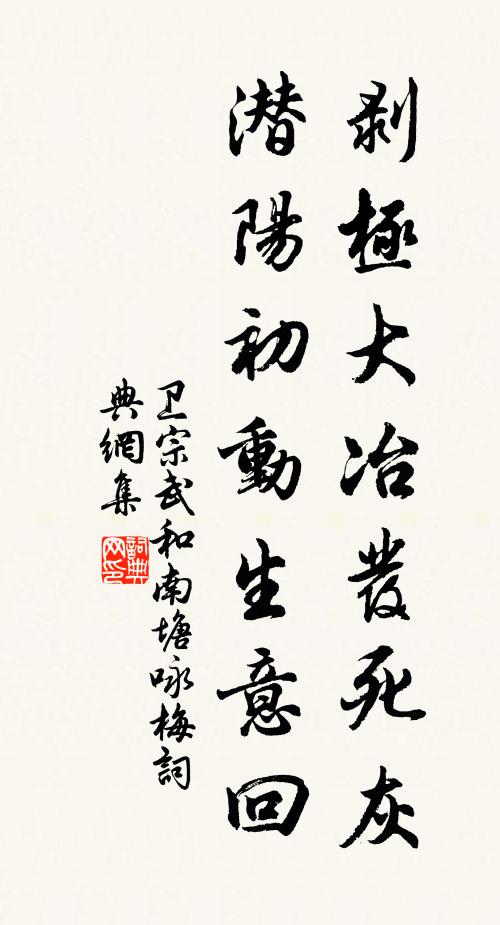 剥極大冶發死灰
潜陽初動生意回
卫宗武和南塘咏梅詞
典網集
詞典网印